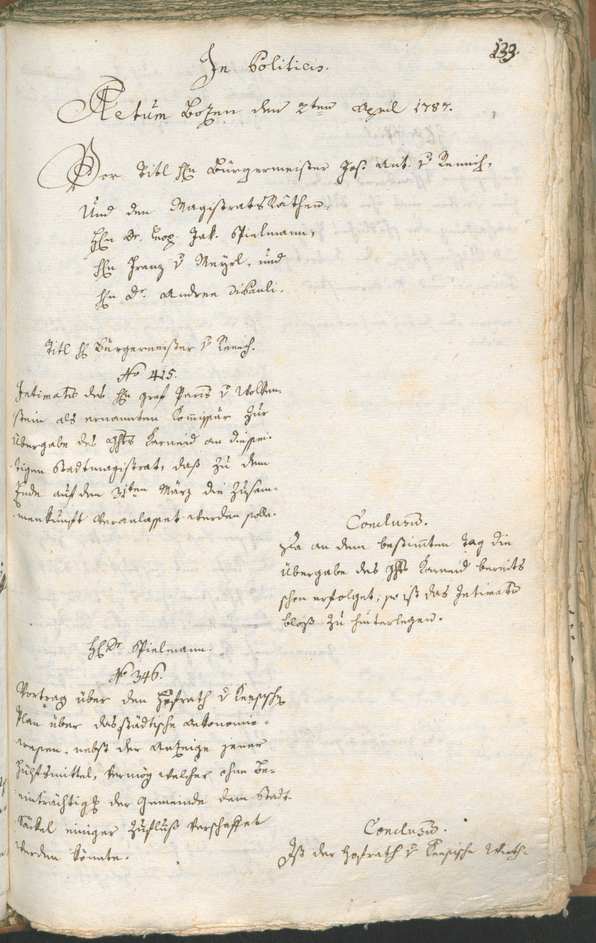 139.
In Politicis.
Actum Bozen den 2ten April 1787.
Vor Titl Hn Bürgermeister Jos. Ant. v Remich,
Und den Magistrats Räthen,
Hn Dr. Leop. Jak. Spielmann,
Hn Franz v Mayrl, und
Hn Dr. Andree Dibauli.
Titl H Bürgermeister v Remich.
No 415.
Intimatū des Hn graf Paris v Wolken-
stein als ernannten Kommissär zur
Übergabe des Ghts Karneid an diessei-
tigen Stadtmagistrat, daß zu dem
Ende auf den 31ten März die Zusam-
menkunft veranlasset werden solle.
Conclusū.
Da an dem bestimten Tag die
Übergabe des Ghts Karneid bereits
schon erfolget, so ist das Intimatū
bloß zu hinterlegen.
H Dr Spielmann.
No 346.
Vortrag über den Hofrath v
Plan über das städtische oekonomie-
wesen, nebst der Anzeige jener
Hülfsmittel, vermög welcher ohne Be-
einträchtigg der Gemeinde dem Stadt
Säckel einiger Zufluß verschaffet
werden könnte.
Conclusū.
Ist der Hofrath v